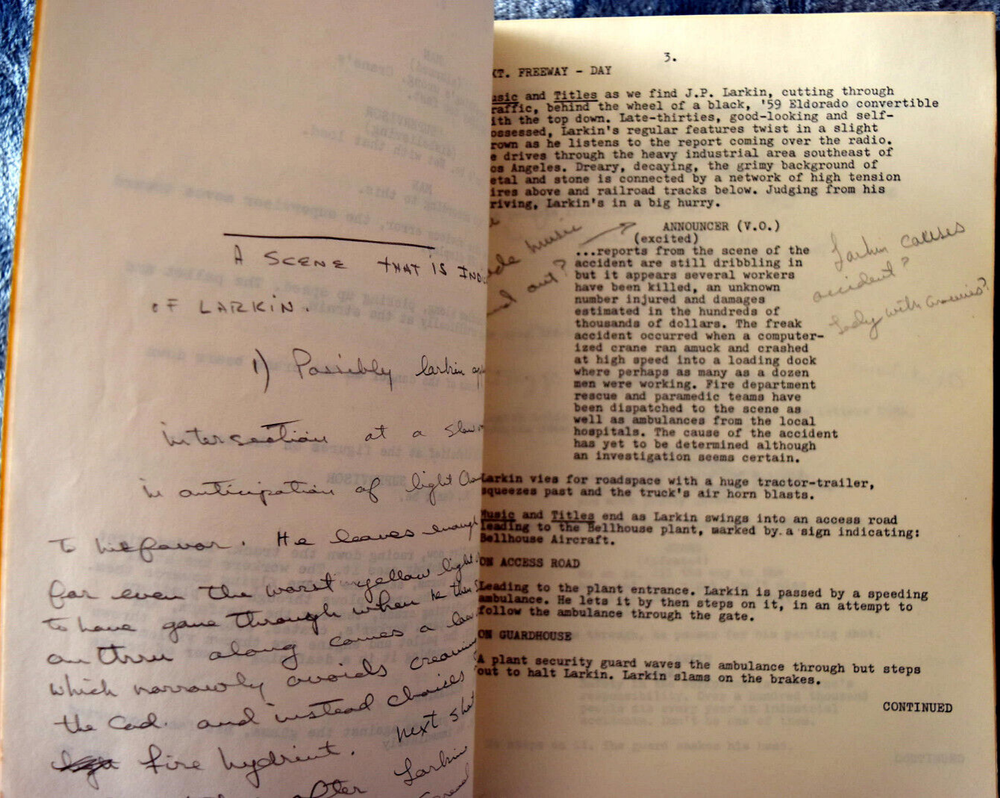 A SCENE THAT IS
OF LARKIN.
1) Possibly larkin
intersection at a slow
in anticipation of light
to his favor. He leaves enough
for even the worst yellow light
to have gone through when he then
on thru along comes a
which narrowly avoids
the Cad. and instead
fire hydrint. next shot
after Larkin
3.
XT. FREEWAY - DAY
usic and Titles as we find J.P. Larkin, cutting through
raffic, behind the wheel of a black, '59 Eldorado convertible
ith the top down. Late-thirties, good-looking and self-
ossessed, Larkin's regular features twist in a slight
rown as he listens to the report coming over the radio.
e drives through the heavy industrial area southeast of
os Angeles. Dreary, decaying, the grimy background of
etal and stone is connected by a network of high tension
ires above and railroad tracks below. Judging from his
riving, Larkin's in a big hurry.
music
out?
ANNOUNCER (V.O.)
(excited)
...reports from the scene of the
accident are still dribbling in
but it appears several workers
have been killed, an unknown
number injured and damages
estimated in the hundreds of
thousands of dollars. The freak
accident occurred when a computer-
ized crane ran amuck and crashed
at high speed into a loading dock
where perhaps as many as a dozen
men were working. Fire department
rescue and paramedic teams have
been dispatched to the scene as
well as ambulances from the local
hospitals. The cause of the accident
has yet to be determined although
an investigation seems certain.
Larkin causes
accident?
Lady with
Larkin vies for roadspace with a huge tractor-trailer,
squeezes past and the truck's air horn blasts.
Music and Titles end as Larkin swings into an access road
leading to the Bellhouse plant, marked by a sign indicating:
Bellhouse Aircraft.
ON ACCESS ROAD
Leading to the plant entrance. Larkin is passed by a speeding
ambulance. He lets it by then steps on it, in an attempt to
follow the ambulance through the gate.
ON GUARDHOUSE
A plant security guard waves the ambulance through but steps
out to halt Larkin. Larkin slams on the brakes.
CONTINUED